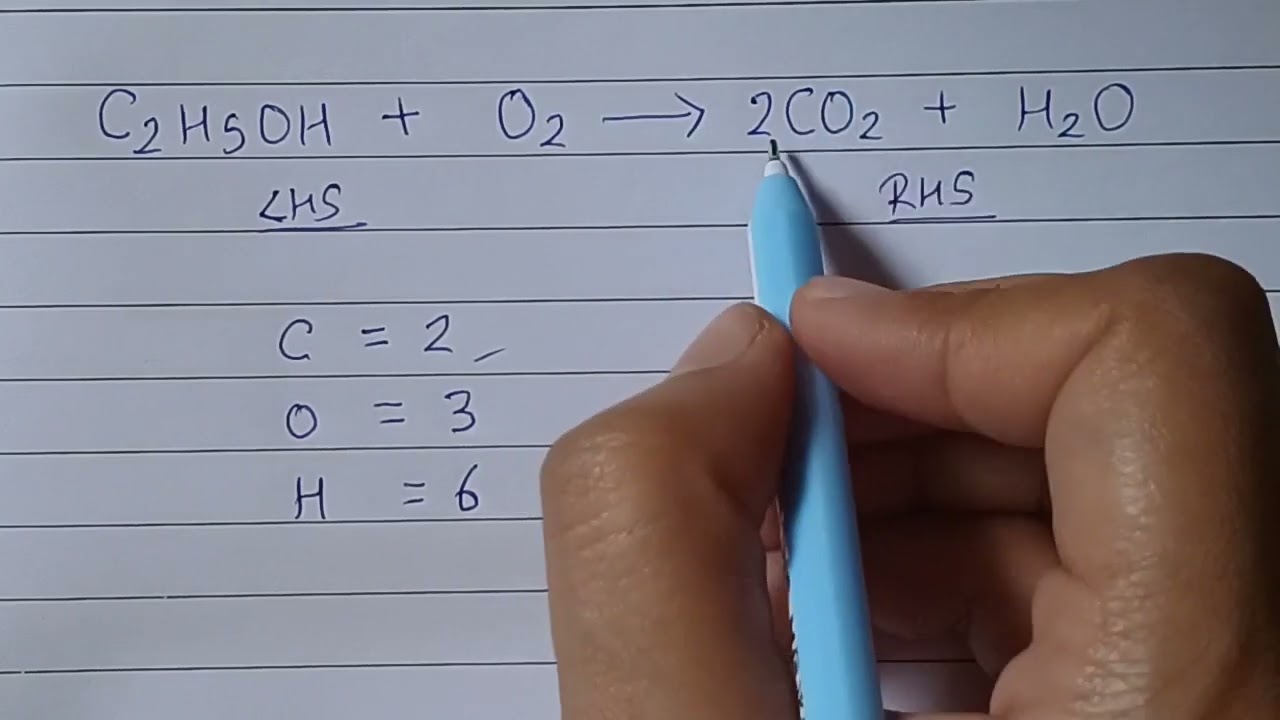 C₂H₅OH + O₂ → 2CO₂ + H₂O
LHS RHS
C = 2
O = 3
H = 6